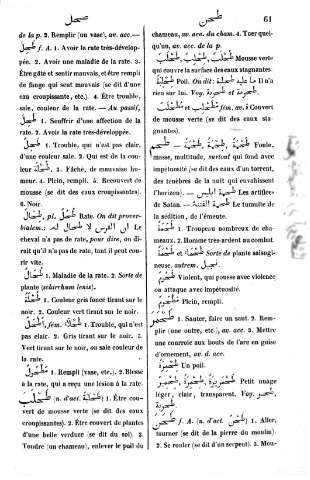 طحل
طحن
61
de la p. 2. Remplir (un vase), av. acc.—
طحل f. A. 1. Avoir la rate très-dévelop-
pée. 2. Avoir une maladie de la rate. 3.
Être gâté et sentir mauvais, et être rempli
de fange qui sent mauvais (se dit d'une
eau croupissante, etc.). 4. Être trouble,
sale, couleur de la rate. — Au passif,
طحل 1. Souffrir d'une affection de la
rate. 2. Avoir la rate très-développée.
1. Trouble, qui n'est pas clair,
d'une couleur sale. 2. Qui est de la cou-
leur طحلة. 3. Fâché, de mauvaise hu-
meur. 4. Plein, rempli. 5. Recouvert de
mousse (se dit des eaux croupissantes).
6. Noir.
طحال, pl. طحل Rate. On dit prover-
bialem.: ان الفرس لا طحال له Le
cheval n'a pas de rate, pour dire, on di-
rait qu'il n'a pas de rate, tant il peut cou-
rir vite.
طحال 1. Maladie de la rate. 2. Sorte de
plante
طحلة 1. Couleur gris foncé tirant sur le
noir. 2. Couleur vert tirant sur le noir.
اطحل, fém. طحلاء 1. Trouble, qui n'est
pas clair. 2. Gris tirant sur le noir. 3.
Vert tirant sur le noir, ou sale couleur de
la rate.
مطحول 1. Rempli (vase, etc.). 2. Blessé
à la rate, qui a reçu une lésion à la rate.
طحلب (n. d'act. طحلبة) 1. Être cou-
vert de mousse verte (se dit des eaux
croupissantes). 2. Être couvert de plantes
d'une belle verdure (se dit du sol). 3.
Tondre (un chameau), enlever le poil du
chameau, av. acc. du cham. 4. Tuer quel-
qu'un, av. acc. de la p.
طحلب, Mousse verte
qui couvre la surface des eaux stagnantes.
Poil. On dit : ما عليه طحلبة Il n'a
rien sur lui. Voy.
مطحلب et fém. av. ة Couvert
de mousse verte (se dit des eaux sta-
gnantes).
طحمة — Foule,
masse, multitude, surtout qui fond avec
impétuosité (se dit des eaux d'un torrent,
des ténèbres de la nuit qui envahissent
l'horizon). — طحمة ابليس Les artifices
de Satan. — طحمة الفتنة Le tumulte de
la sédition, de l'émeute.
طحمة 1. Troupeau nombreux de cha-
meaux. 2. Homme très-ardent au combat.
طحماء et Sorte de plante salsugi-
neuse, autrem. نجيل.
طحوم Violent, qui pousse avec violence
ou attaque avec impétuosité.
مطحوم Plein, rempli.
طحمر 1. Sauter, faire un saut. 2. Rem-
plir (une outre, etc.), av. acc. 3. Mettre
une courroie aux bouts de l'arc en guise
d'ornement, av. d. acc.
Un poil.
Petit nuage
léger, clair, transparent. Voy.
طحن f. A. (n. d'act. طحن) 1. Aller,
tourner (se dit de la pierre du moulin).
2. Se rouler (se dit d'un serpent). 3. Mou-